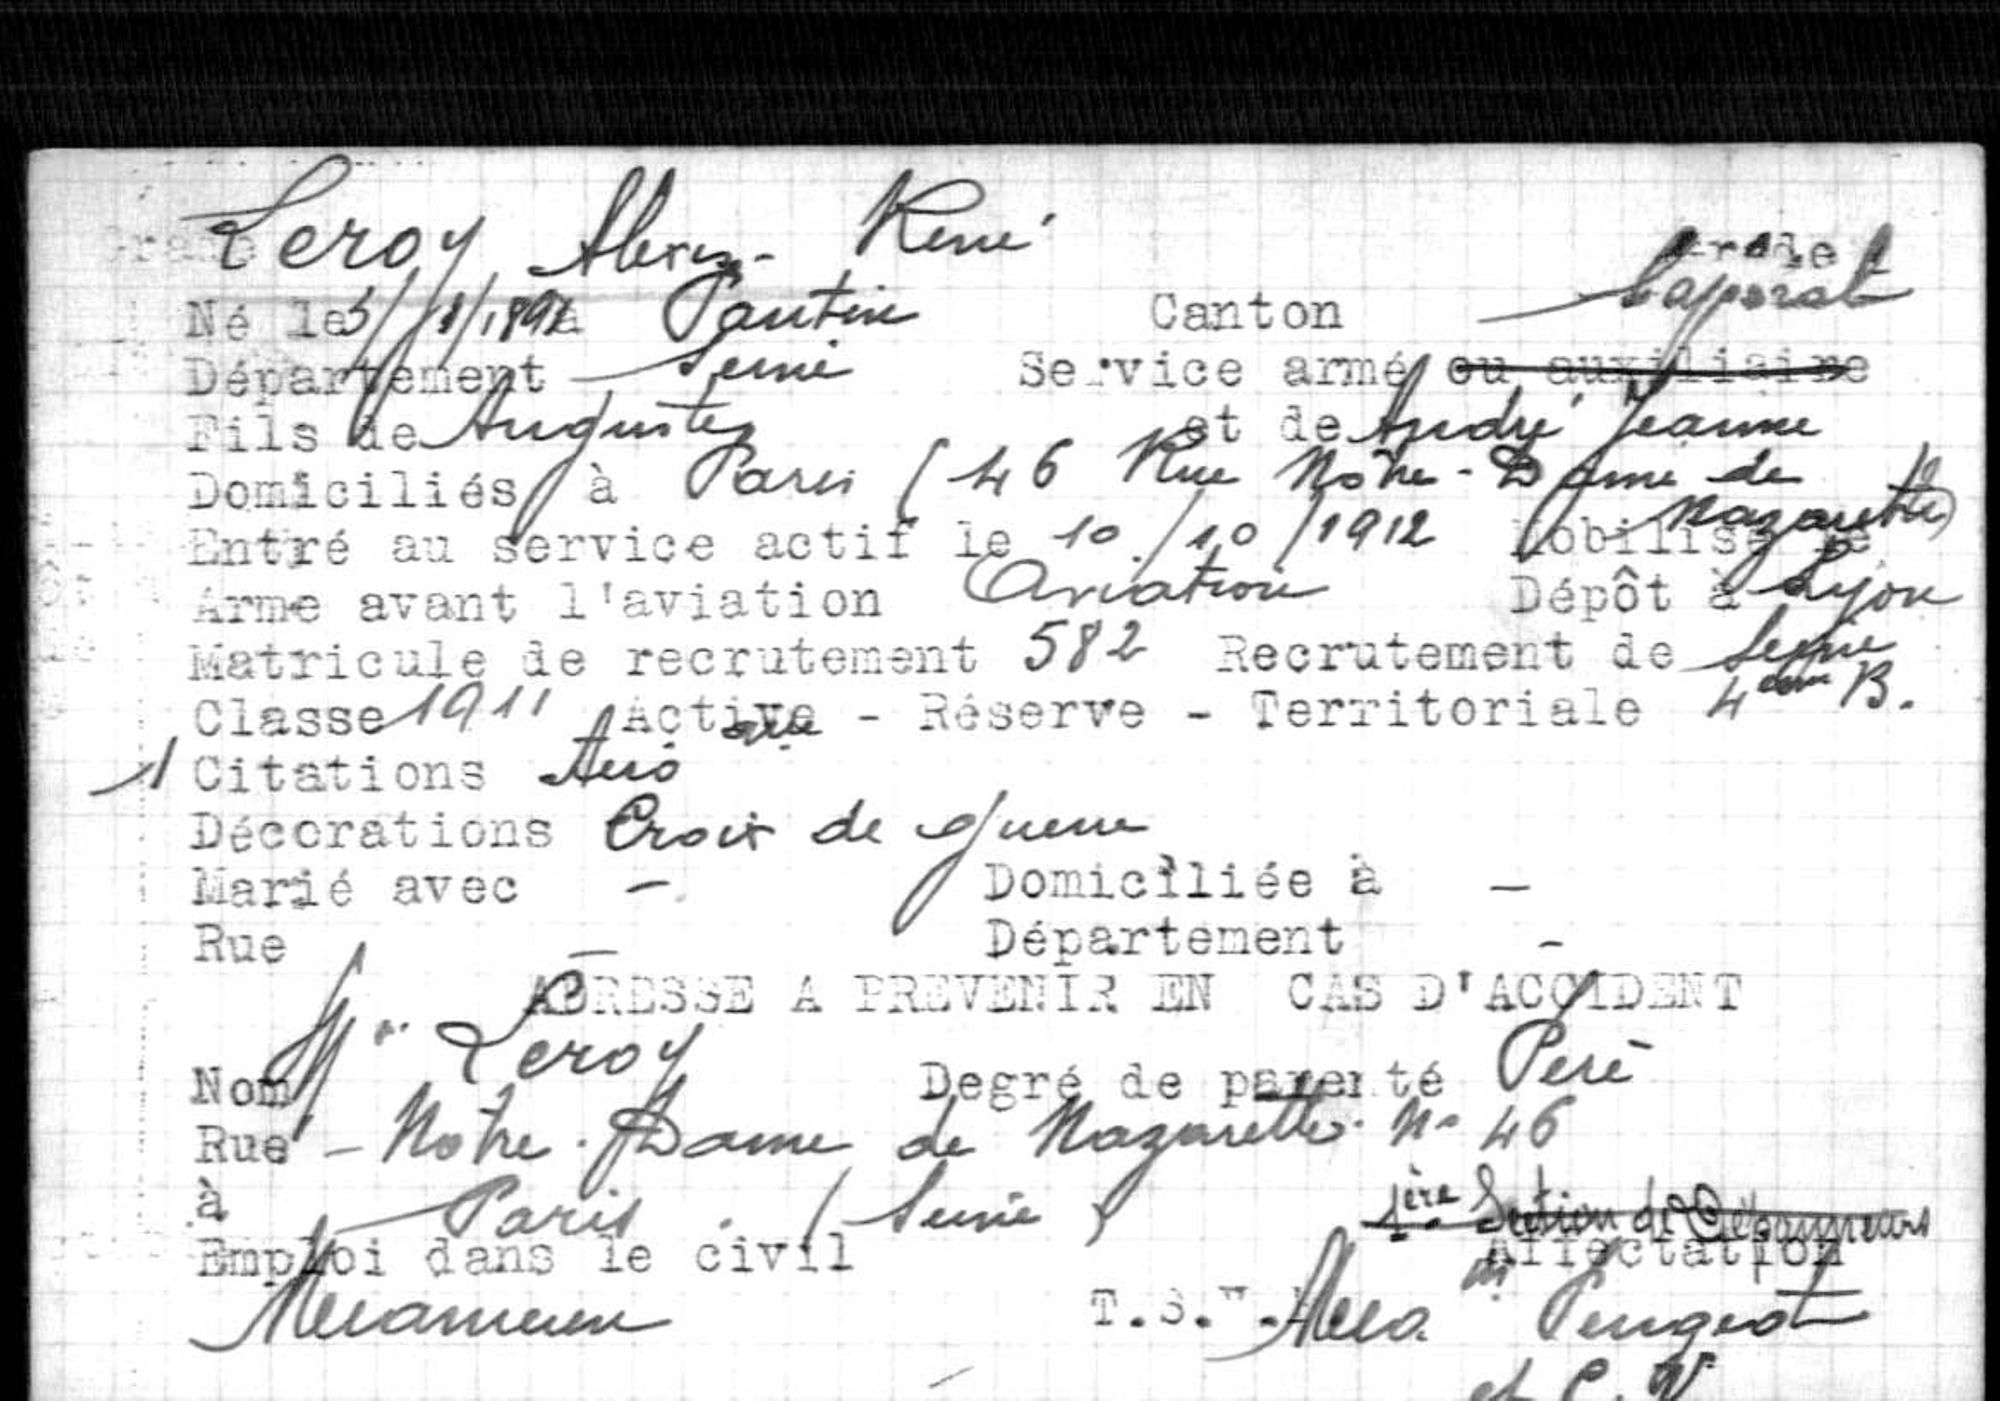 Leroy René
Grade
Caporal
Né le 5/ 8/1891 à Pantin Canton
Département Seine Service armé ou auxiliaire
Fils de Auguste et de André Jeanne
Domiciliés à Paris ( 46 Rue Notre-Dame de
Nazareth)
Entré au service actif le 10/10/1912 Mobilisé le
Arme avant l'aviation Aviation Dépôt à Lyon
Matricule de recrutement 582 Recrutement de Seine
4ème B.
Classe 1911 Active - Réserve - Territoriale
1 Citations
Décorations Croix de guerre
Marié avec - Domiciliée à -
Rue - Département -
ADRESSE A PREVENIR EN CAS D'ACCIDENT
Nom Mr. Leroy Degré de parenté Père
Rue - Notre-Dame de Nazareth. No 46
à Paris (Seine)
1ère Section de
Emploi dans le civil Affectation
Mécanicien T.S. Méca Peugeot
et C. V